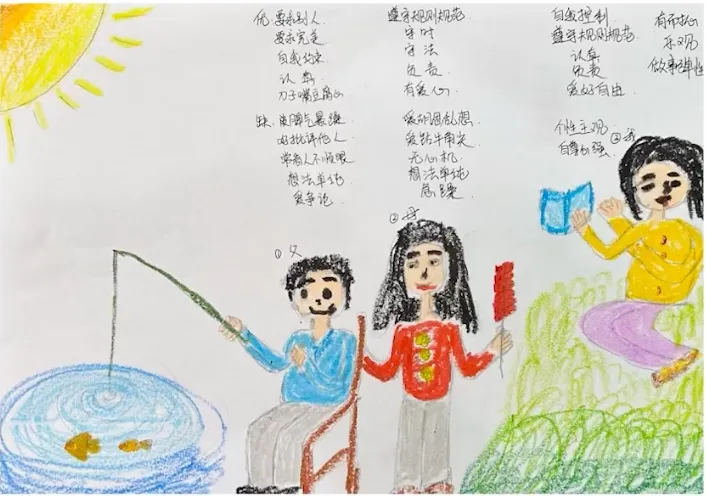 优 要求别人
要求完美
自我约束
认真
刀子嘴豆腐心
缺 脾气暴躁
好批评他人
常看人不顺眼
想法单纯
爱争论
①父
遵守规则规范
守时
守法
负责
有爱心
爱胡思乱想
爱钻牛角尖
无心机
想法单纯
急躁
②母
自我控制
遵守规则规范
认真
负责
爱好自由
个性主观
自尊心强
③我
乐观
做事弹性